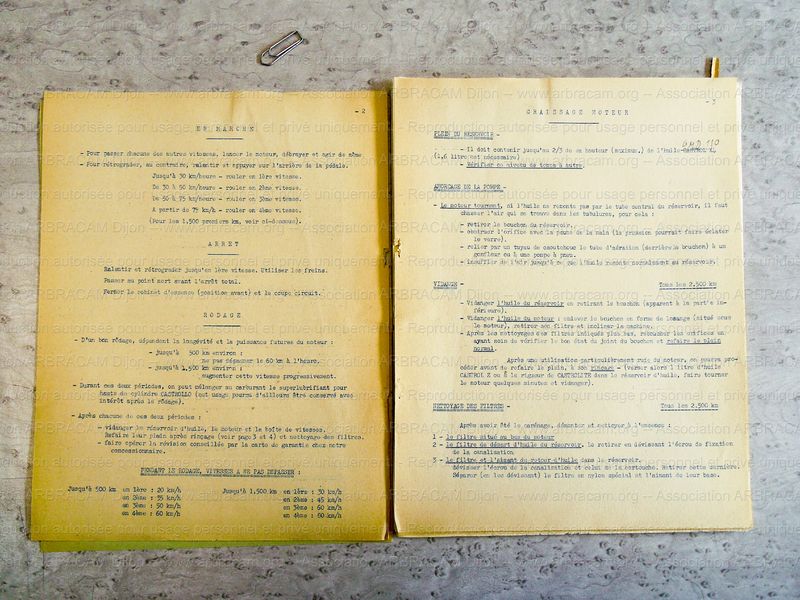 - 2
EN MARCHE
- Pour passer chacune des autres vitesses, lancer le moteur, débrayer et agir de même.
- Pour rétrograder, au contraire, ralentir et appuyer sur l'arrière de la pédale.
Jusqu'à 30 km/heure - rouler en 1ère vitesse.
De 30 à 50 km/heure - rouler en 2ème vitesse.
De 50 à 75 km/heure - rouler en 3ème vitesse.
A partir de 75 km/h - rouler en 4ème vitesse.
(Pour les 1.500 premiers km, voir ci-dessous).
ARRET
Ralentir et rétrograder jusqu'en 1ère vitesse. Utiliser les freins.
Passer au point mort avant l'arrêt total.
Fermer le robinet d'essence (position avant) et le coupe circuit.
RODAGE
- D'un bon rôdage, dépendent la longévité et la puissance futures du moteur :
- Jusqu'à 500 km environ :
ne pas dépasser le 60 km à l'heure.
- Jusqu'à 1.500 km environ :
augmenter cette vitesse progressivement.
- Durant ces deux périodes, on peut mélanger au carburant le superlubrifiant pour
hauts de cylindre CASTROLLO (cet usage pourra d'ailleurs être conservé avec
intérêt après le rôdage).
- Après chacune de ces deux périodes :
- vidanger le réservoir d'huile, le moteur et la boîte de vitesses.
Refaire leur plein après rinçage (voir page 3 et 4) et nettoyage des filtres.
- faire opérer la révision conseillée par la carte de garantie chez notre
concessionnaire.
PENDANT LE RODAGE, VITESSES A NE PAS DEPASSER :
Jusqu'à 500 km en 1ère : 20 km/h Jusqu'à 1.500 km en 1ère : 30 km/h
en 2ème : 35 km/h en 2ème : 45 km/h
en 3ème : 50 km/h en 3ème : 60 km/h
en 4ème : 60 km/h en 4ème : 80 km/h
- 3
GRAISSAGE MOTEUR
PLEIN DU RESERVOIR -
- Il doit contenir jusqu'au 2/3 de sa hauteur (maximum) de l'huile CASTROL
litre est nécessaire)
- Vérifier ce niveau de temps à autre.
AMORCAGE DE LA POMPE -
- Le moteur tournant, si l'huile ne remonte pas par le tube central du réservoir, il faut
chasser l'air qui se trouve dans les tubulures, pour cela :
- retirer le bouchon du réservoir.
- obstruer l'orifice avec la paume de la main (la pression pourrait faire éclater
le verre).
- relier par un tuyau de caoutchouc le tube d'aération (derrière le bouchon) à un
gonfleur ou à une pompe à pneu.
- insuffler de l'air jusqu'à ce que l'huile remonte normalement au réservoir.
VIDANGE - Tous les 2.500 km
- Vidanger l'huile du réservoir en retirant le bouchon (apparent à la partie in-
férieure).
- Vidanger l'huile du moteur : enlever le bouchon en forme de losange (situé sous
le moteur), retirer son filtre et incliner la machine.
- Après les nettoyages des filtres indiqués plus bas, reboucher les orifices en
ayant soin de vérifier le bon état du joint du bouchon et refaire le plein
normal.
Après une utilisation particulièrement rude du moteur, on pourra pro-
céder avant de refaire le plein, à son rinçage - (verser alors 1 litre d'huile
CASTROL Z ou à la rigueur de CASTROLITE dans le réservoir d'huile, faire tourner
le moteur quelques minutes et vidanger).
NETTOYAGE DES FILTRES - Tous les 2.500 km
Après avoir ôté le carénage, démonter et nettoyer à l'essence :
1 - le filtre situé au bas du moteur
2 - le filtre de départ d'huile du réservoir. le retirer en dévissant l'écrou de fixation
de la canalisation.
3 - le filtre et l'aimant du retour d'huile dans le réservoir.
dévisser l'écrou de la canalisation et celui de la cartouche. Retirer cette dernière.
Séparer (en les dévissant) le filtre en nylon spécial et l'aimant de leur base.
ARBRACAM Dijon -- www.arbracam.org -- Association ARBRACAM Dijon
Reproduction autorisée pour usage personnel et privé uniquement